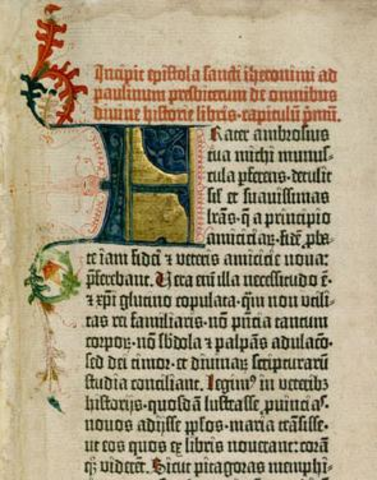 Incipit epistola sancti iheronimi ad
paulinum presbiterum de omnibus
divine historie libris·capitulū pmū.
Frater ambrosius
tua michi munus-
cula pferens·detulit
sił et suavissimas
lrās·q̄ a principio
amiciciaꝝ·fidē ꝓba-
te iam fidei ⁊ veteris amicicie nova:
pferebant. Vera em̄ illa necessitudo ē·
⁊ xpī glutino copulata·qm̄ non utili-
tas rei familiaris·nō pn̄cia tantum
corpoꝝ·nō sbdola ⁊ palpās adulacō·
sed dei timor·et divinaꝝ scripturarū
studia conciliant. Legimꝰ in veteribꝫ
historijs·quosdā lustrasse ꝓuincias·
novos adijsse pplos·maria trāsisse·
ut eos quos ex libris noverant: corā
qꝫ viderēt. Sicut pitagoras memphi-